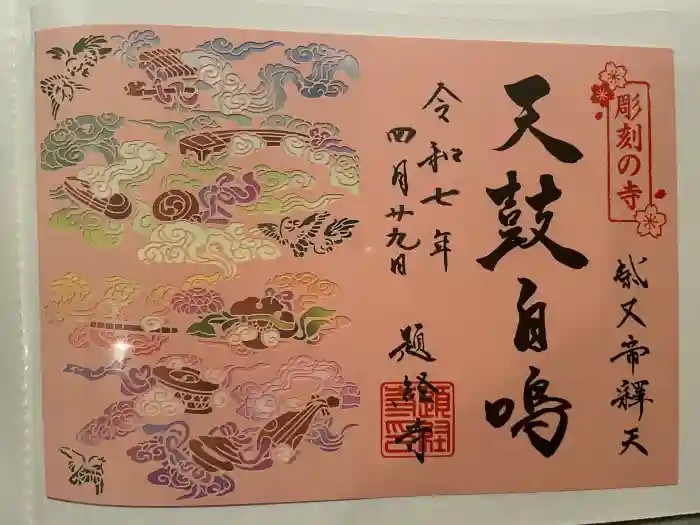 彫刻の寺
柴又帝釋天
天鼓自鳴
令和七年
四月廿九日
題経寺